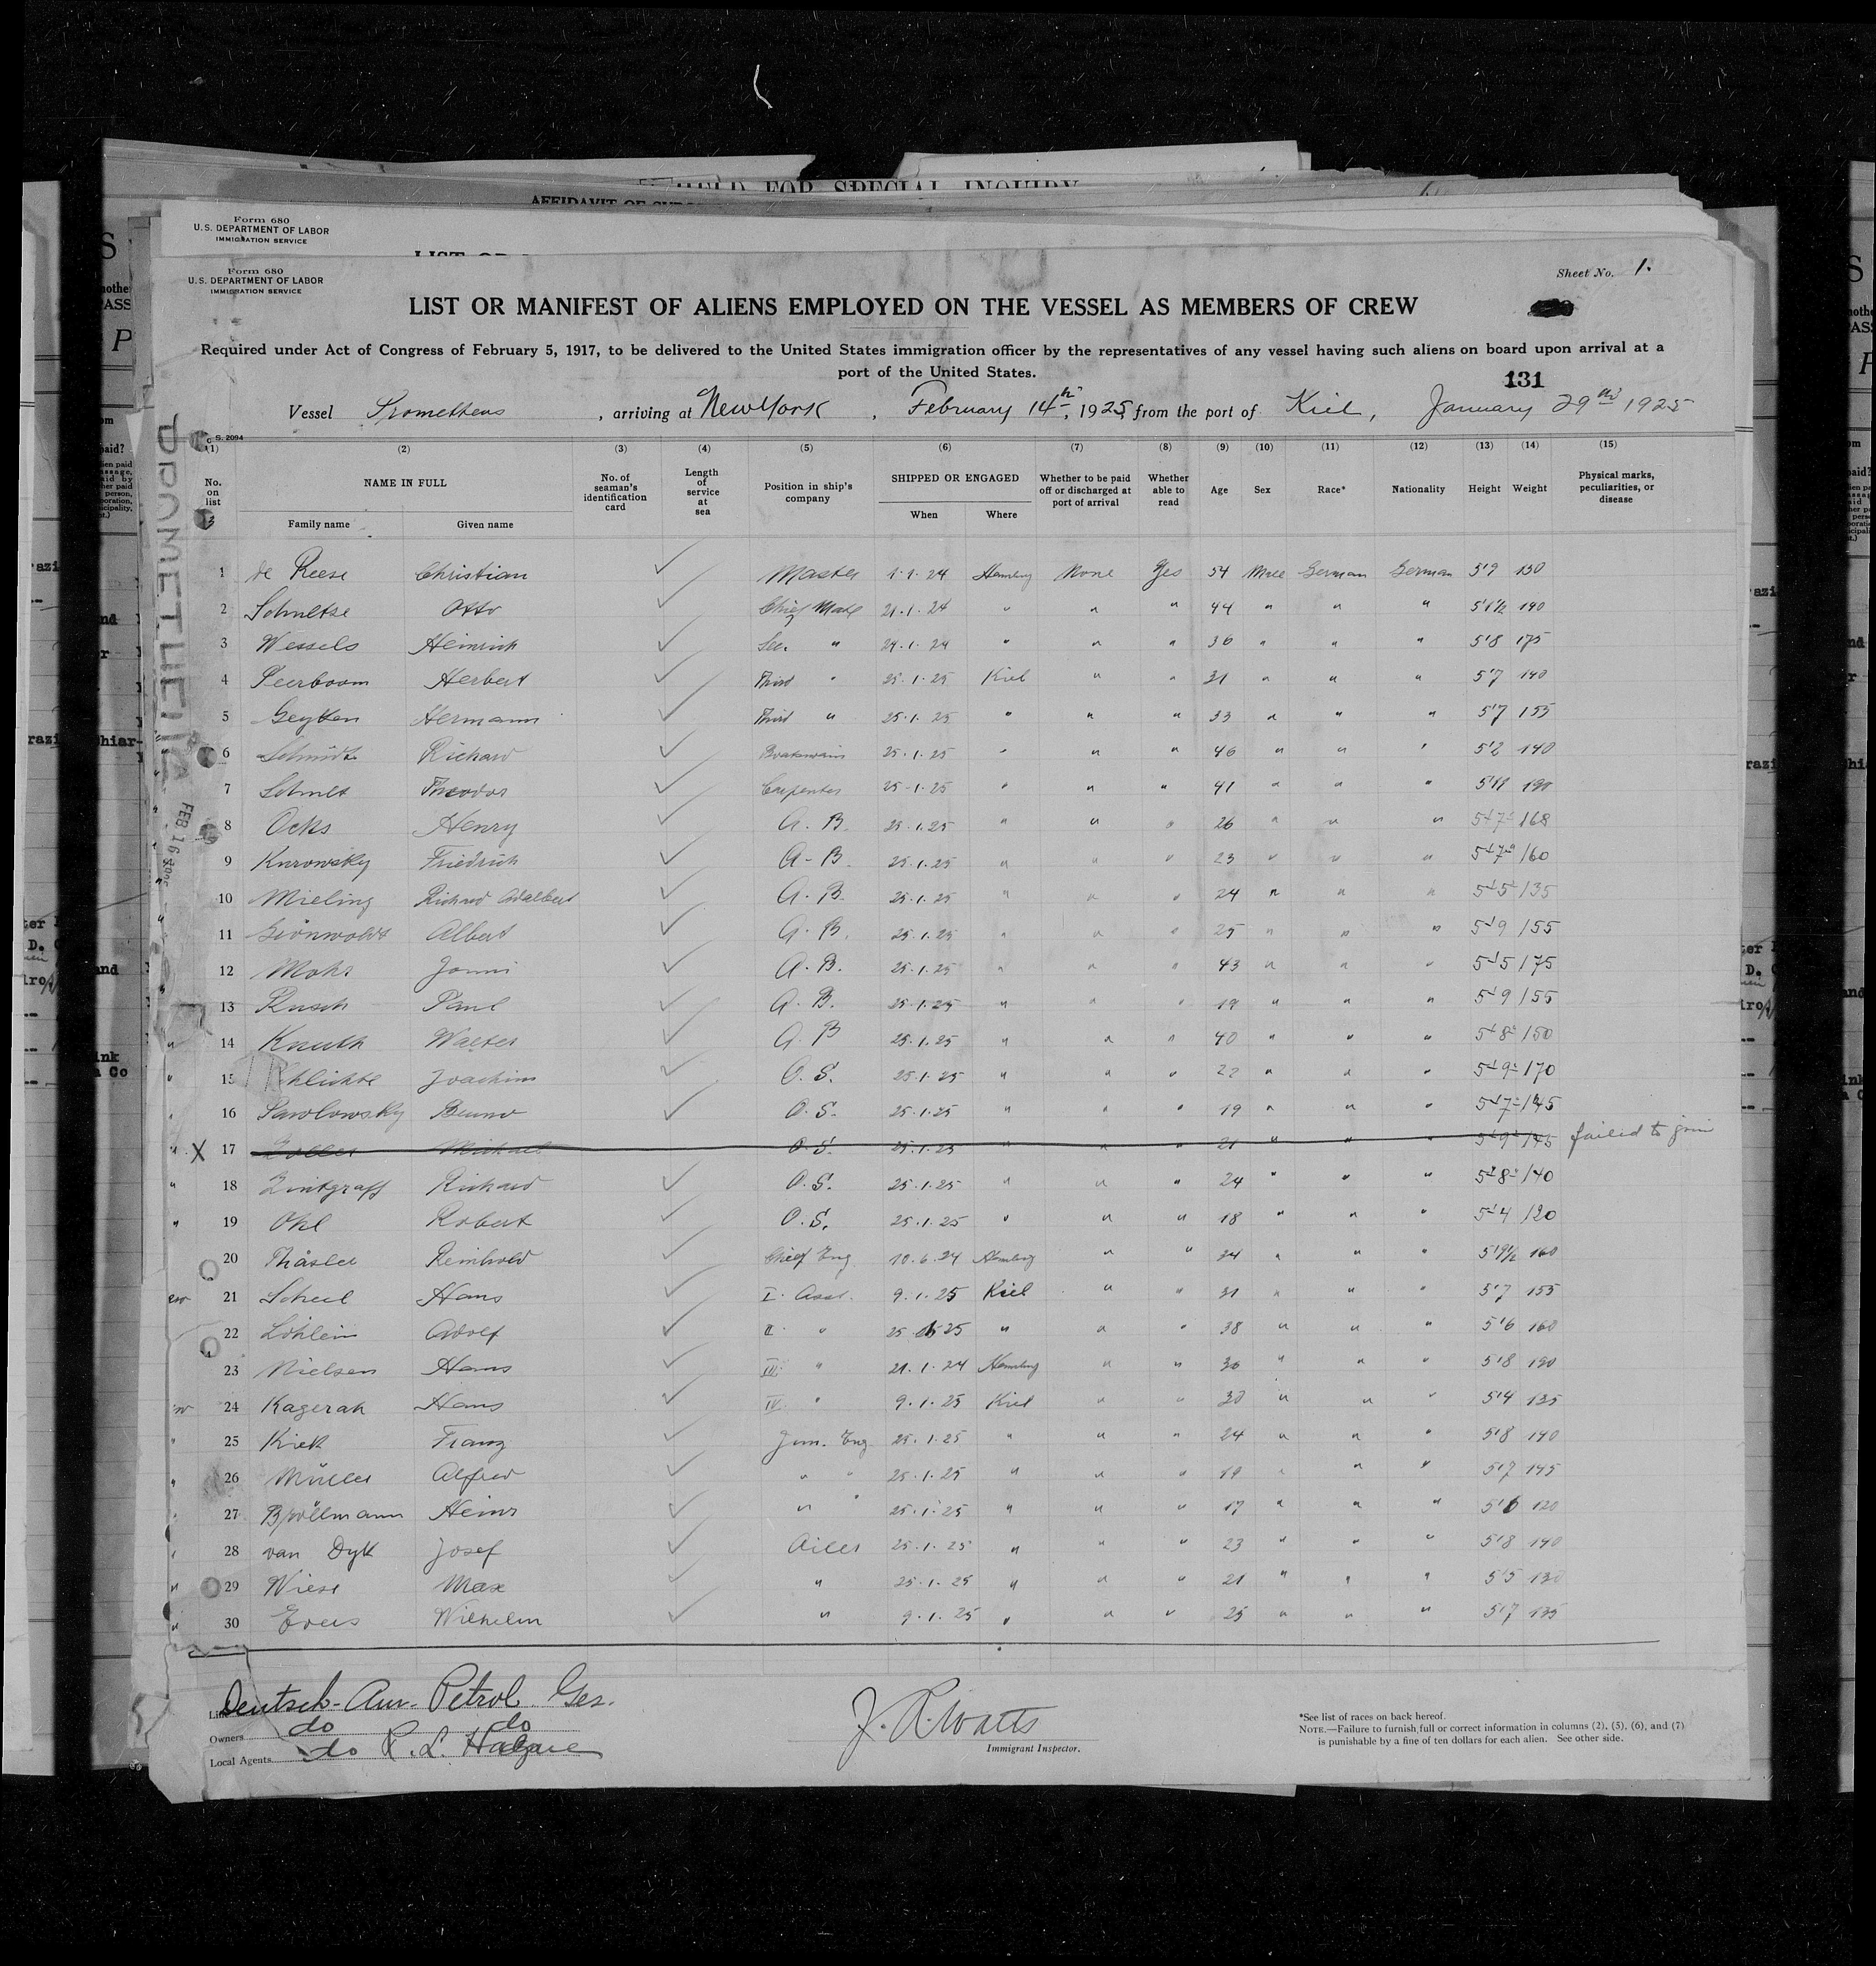 HELD FOR SPECIAL INQUIRY
Form 680
U.S. DEPARTMENT OF LABOR
IMMIGRATION SERVICE
Form 680
U.S. DEPARTMENT OF LABOR
IMMIGRATION SERVICE
Sheet No. 1.
LIST OR MANIFEST OF ALIENS EMPLOYED ON THE VESSEL AS MEMBERS OF CREW
Required under Act of Congress of February 5, 1917, to be delivered to the United States immigration officer by the representatives of any vessel having such aliens on board upon arrival at a
port of the United States.
131
Vessel Prometheus, arriving at New York, February 14th, 1925, from the port of Kiel, January 29th 1925
PROMETHEUS
FEB 16 1925
C. S. 2094
(1) (2) (3) (4) (5) (6) (7) (8) (9) (10) (11) (12) (13) (14) (15)
No. on list NAME IN FULL Family name Given name No. of seaman's identification card Length of service at sea Position in ship's company SHIPPED OR ENGAGED When Where Whether to be paid off or discharged at port of arrival Whether able to read Age Sex Race* Nationality Height Weight Physical marks, peculiarities, or disease
1 de Reese Christian Master 1.1.24 Hamburg None Yes 54 Male German German 5'9 150
2 Schultze Otto Chief Mate 21.1.24 " " " 44 " " " 190
3 Wessels Heinrich Sec. " 24.1.24 " " " 36 " " " 5'8 175
4 Peerboom Herbert Third " 25.1.25 Kiel " " 31 " " " 5'7 140
5 Geyken Hermann Third " 25.1.25 " " " 33 " " " 5'7 155
6 Schmidt Richard Boatswain 25.1.25 " " " 46 " " " 5'2 140
7 Schult Theodor Carpenter 25.1.25 " " " 41 " " " 5'11 190
8 Ocks Henry A.B. 25.1.25 " " " 26 " " " 5-7 168
9 Kurowsky Friedrich A.B. 25.1.25 " " " 23 " " " 5-7 160
10 Mieling Richard Adalbert A.B. 25.1.25 " " " 24 " " " 5-5 135
11 Grönwoldt Albert A.B. 25.1.25 " " " 25 " " " 5-9 155
12 Mohr Jonni A.B. 25.1.25 " " " 43 " " " 5-5 175
13 Rusch Paul A.B. 25.1.25 " " " 19 " " " 5-9 155
14 Knuth Walter A.B 25.1.25 " " " 40 " " " 5-8 150
15 Schlichte Joachim O.S. 25.1.25 " " " 22 " " " 5-9 170
16 Pawlowsky Bruno O.S. 25.1.25 " " " 19 " " " 5-7 145
X 17 Michael O.S. 25.1.25 " " " 21 " " " 5-9 145 failed to join
18 Zintgraff Richard O.S. 25.1.25 " " " 24 " " " 5-8 140
19 Ohl Robert O.S. 25.1.25 " " " 18 " " " 5-4 120
20 Reinhold Chief Eng 10.6.24 Hamburg " " 34 " " " 5'9½ 160
21 Scheel Hans I. Asst. 9.1.25 Kiel " " 31 " " " 5'7 155
22 Löhlein Adolf II " 25 25 " " " 38 " " " 5'6 160
23 Nielsen Hans III " 21.1.24 Hamburg " " 30 " " " 5'8 190
24 Kagerah Hans IV " 9.1.25 Kiel " " 30 " " " 5'4 135
25 Kiek Franz Jun. Eng 25.1.25 " " " 24 " " " 5'8 140
26 Müller Alfred " " 25.1.25 " " " 19 " " " 5'7 145
27 Heinz " " 25.1.25 " " " 17 " " " 5'6 120
28 van Dyk Josef Oiler 25.1.25 " " " 23 " " " 5'8 140
29 Wiese Max " 25.1.25 " " " 21 " " " 5'5 130
30 Evers Wilhelm " 9.1.25 " " " 25 " " " 5'7 135
Deutsch-Am. Petrol. Ges.
Owners do do
Local Agents do R. L. Hague
J. R. Watts
Immigrant Inspector.
*See list of races on back hereof.
NOTE.—Failure to furnish full or correct information in columns (2), (5), (6), and (7)
is punishable by a fine of ten dollars for each alien. See other side.